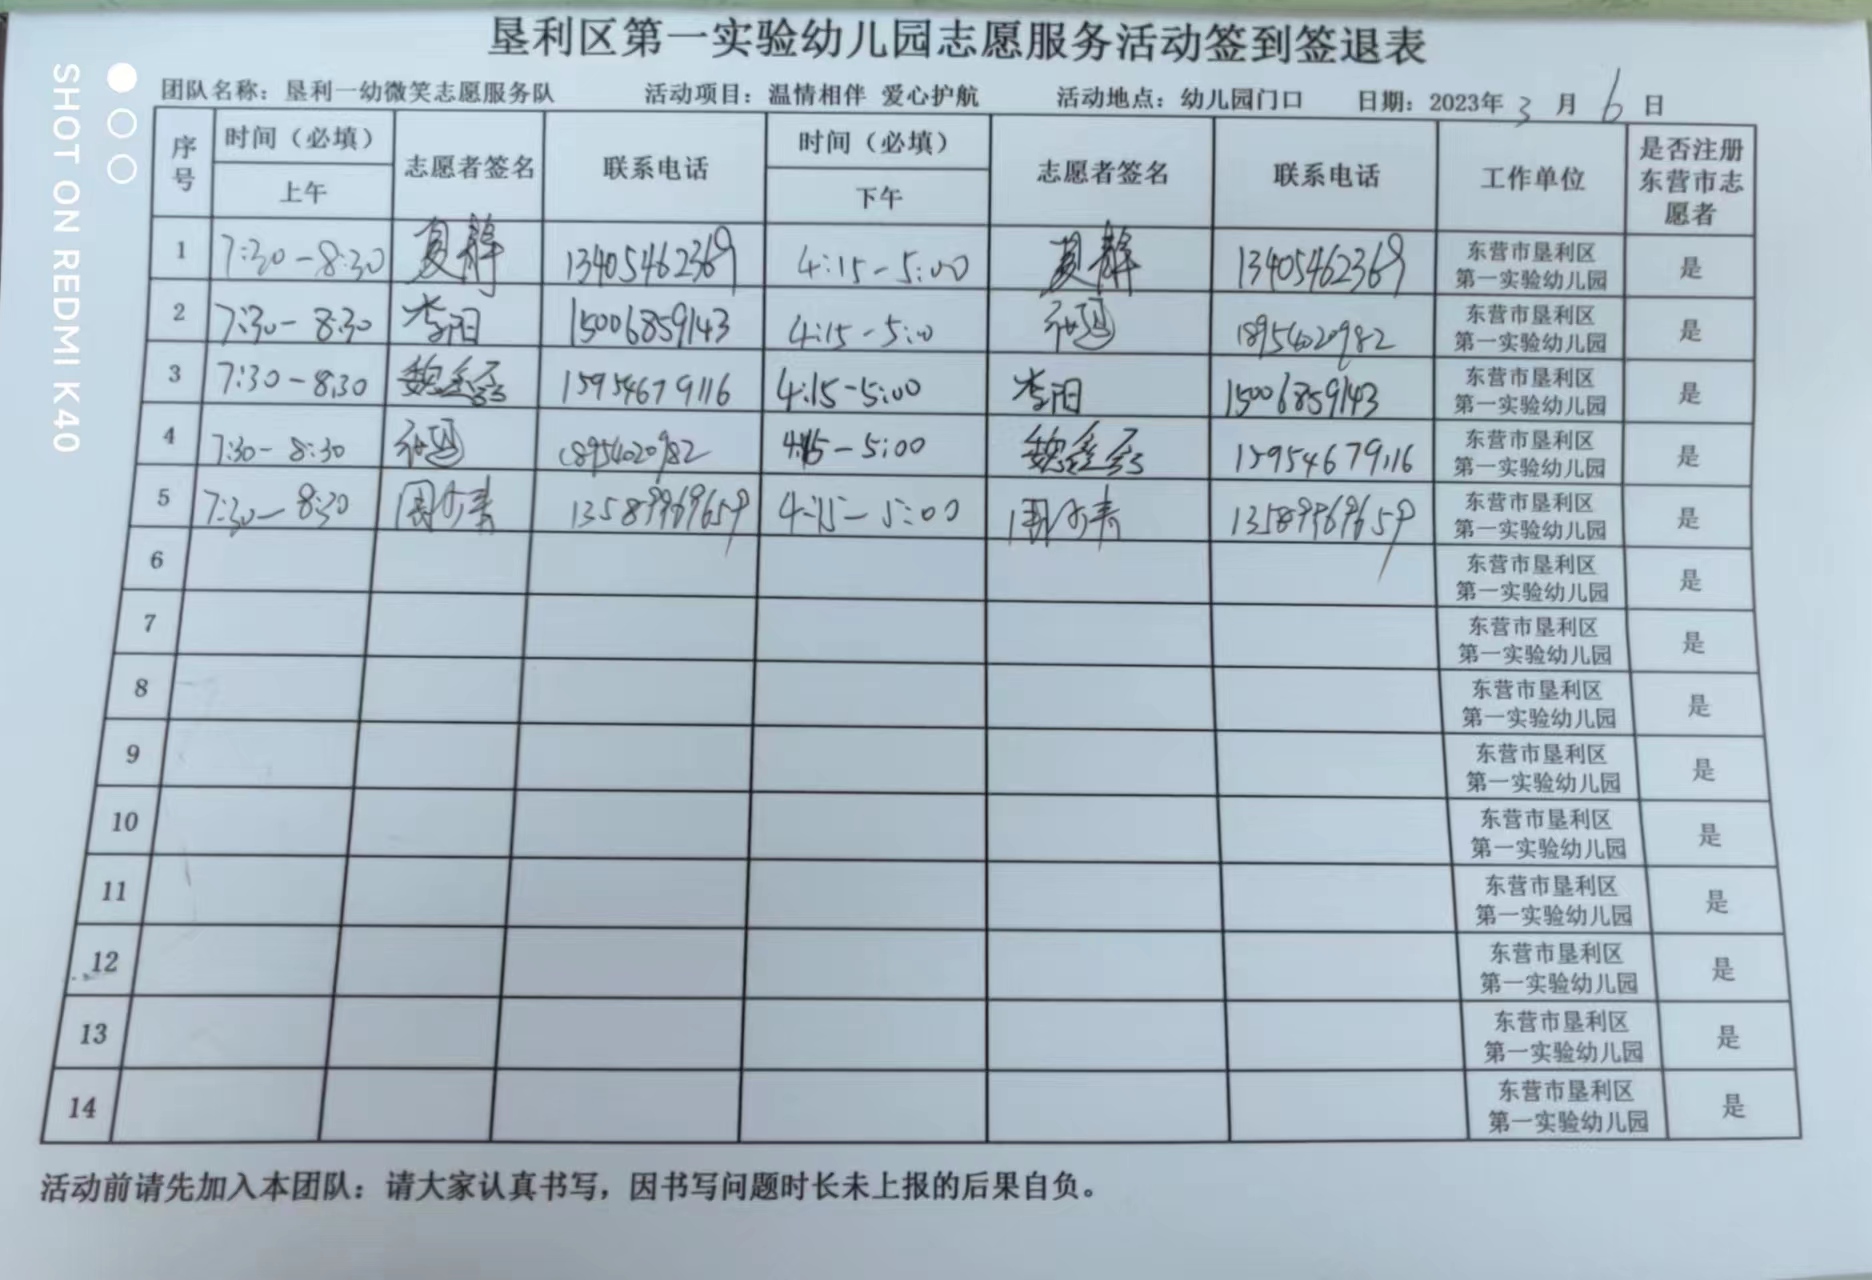 垦利区第一实验幼儿园志愿服务活动签到签退表
团队名称：垦利一幼微笑志愿服务队 活动项目：温情相伴 爱心护航 活动地点：幼儿园门口 日期：2023年 3 月 6 日
序号 时间（必填） 上午 志愿者签名 联系电话 时间（必填） 下午 志愿者签名 联系电话 工作单位 是否注册东营市志愿者
1 7:30-8:30 夏静 13405462369 4:15-5:00 夏静 13405462369 东营市垦利区第一实验幼儿园 是
2 7:30-8:30 李阳 15006859143 4:15-5:0 18954020982 东营市垦利区第一实验幼儿园 是
3 7:30-8:30 魏鑫 15954679116 4:15-5:00 李阳 15006859143 东营市垦利区第一实验幼儿园 是
4 7:30-8:30 18954020982 4:15-5:00 魏鑫 15954679116 东营市垦利区第一实验幼儿园 是
5 7:30-8:30 周 13589969659 4:15-5:00 周 13589969659 东营市垦利区第一实验幼儿园 是
6 东营市垦利区第一实验幼儿园 是
7 东营市垦利区第一实验幼儿园 是
8 东营市垦利区第一实验幼儿园 是
9 东营市垦利区第一实验幼儿园 是
10 东营市垦利区第一实验幼儿园 是
11 东营市垦利区第一实验幼儿园 是
12 东营市垦利区第一实验幼儿园 是
13 东营市垦利区第一实验幼儿园 是
14 东营市垦利区第一实验幼儿园 是
活动前请先加入本团队：请大家认真书写，因书写问题时长未上报的后果自负。
SHOT ON REDMI K40